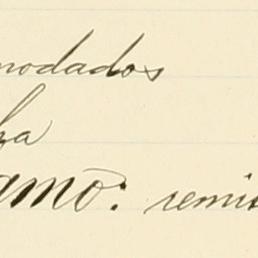 modados
ha
amo: remis